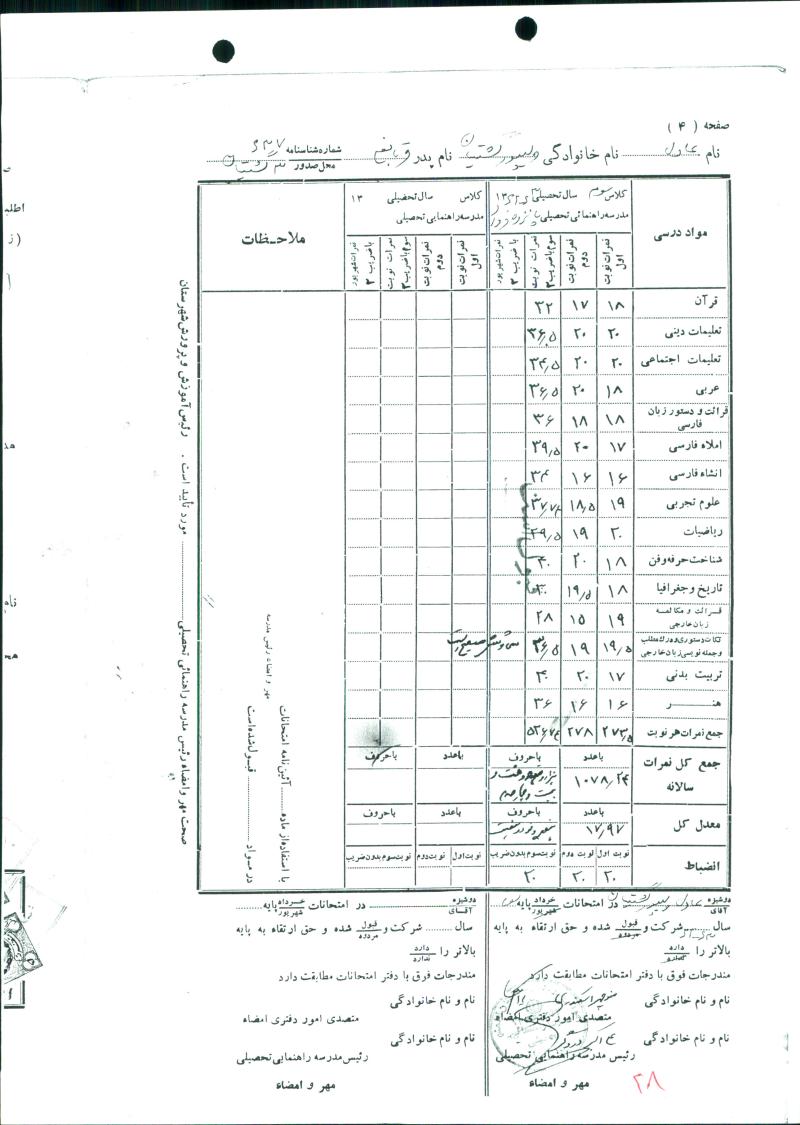 صفحه ( ۴ )
نام عادل نام خانوادگی نام پدر شماره شناسنامه ۶۳۷
محل صدور
مواد درسی
کلاس سوم سال تحصیلی ۱۳
مدرسه راهنمائی تحصیلی
نمرات نوبت اول
نمرات نوبت دوم
نمرات نوبت سوم با ضریب ۲
نمرات شهریور با ضریب ۲
کلاس سال تحصیلی ۱۳
مدرسه راهنمایی تحصیلی
نمرات نوبت اول
نمرات نوبت دوم
نمرات نوبت سوم با ضریب ۲
نمرات شهریور با ضریب ۲
ملاحظات
قرآن ۱۸ ۱۷ ۳۲
تعلیمات دینی ۲۰ ۲۰ ۳۶٫۵
تعلیمات اجتماعی ۲۰ ۲۰ ۳۴٫۵
عربی ۱۸ ۲۰ ۳۶٫۵
قرائت و دستور زبان فارسی ۱۸ ۱۸ ۳۶
املاء فارسی ۱۷ ۲۰ ۳۹٫۵
انشاء فارسی ۱۶ ۱۶ ۳۴
علوم تجربی ۱۹ ۱۸٫۵ ۳۷٫۷۴
ریاضیات ۲۰ ۱۹ ۳۹٫۵
شناخت حرفه و فن ۱۸ ۲۰ ۴۰
تاریخ و جغرافیا ۱۸ ۱۹٫۵
قرائت و مکالمه زبان خارجی ۱۹ ۱۵ ۲۸
نکات دستوری و درک مطلب و جمله نویسی زبان خارجی ۱۹٫۵ ۱۹ ۳۶٫۵
تربیت بدنی ۱۷ ۲۰ ۴۰
هنر ۱۶ ۱۶ ۳۶
جمع نمرات هر نوبت ۲۷۳٫۵ ۲۷۸ ۵۲۶٫۷۴
جمع کل نمرات سالانه
با عدد با حروف با عدد با حروف
۱۰۷۸٫۲۴
معدل کل
با عدد با حروف با عدد با حروف
۱۷٫۹۷
انضباط
نوبت اول نوبت دوم نوبت سوم بدون ضریب نوبت اول نوبت دوم نوبت سوم بدون ضریب
۲۰ ۲۰ ۲۰
با استفاده از ماده آئین نامه امتحانات
در سواد قبول شده است
مهر و امضاء رئیس مدرسه
صحت مهر و امضاء رئیس مدرسه راهنمائی تحصیلی مورد تأیید است . رئیس آموزش و پرورش شهرستان
دوشیزه
آقای عادل در امتحانات خرداد
شهریور پایه
سال شرکت و قبول
مردود شده و حق ارتقاء به پایه
بالاتر را دارد
ندارد
مندرجات فوق با دفتر امتحانات مطابقت دارد
نام و نام خانوادگی
متصدی امور دفتری امضاء
نام و نام خانوادگی
رئیس مدرسه راهنمایی تحصیلی
مهر و امضاء
۲۸
دوشیزه
آقای در امتحانات خرداد
شهریور پایه
سال شرکت و قبول
مردود شده و حق ارتقاء به پایه
بالاتر را دارد
ندارد
مندرجات فوق با دفتر امتحانات مطابقت دارد
نام و نام خانوادگی
متصدی امور دفتری امضاء
نام و نام خانوادگی
رئیس مدرسه راهنمائی تحصیلی
مهر و امضاء